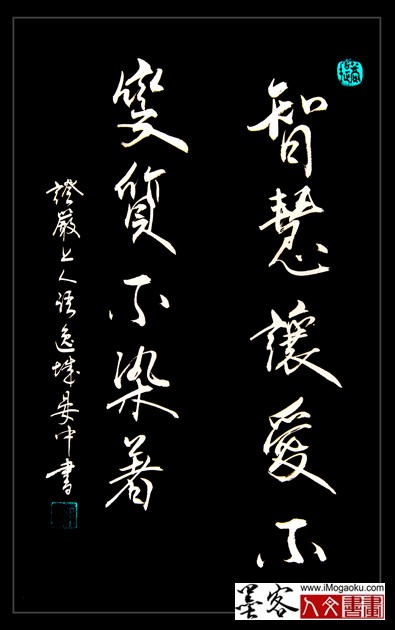 智慧讓愛不
變質不染著
證嚴上人語逸城晏中書
墨客 www.iMogaoku.com
人文書畫